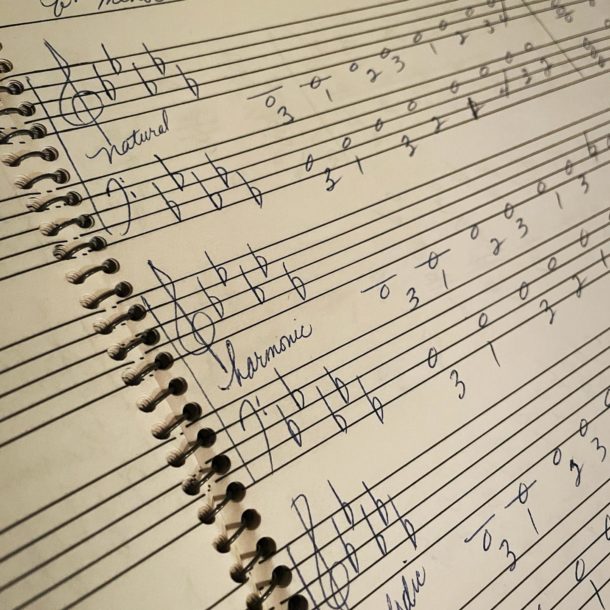 3 1 2 3 1 2 3 4
natural
3 1 3 2 1 4 3 2
3 1 2 3 1 3
harmonic
3 1 3 2 1
3 1 2 3